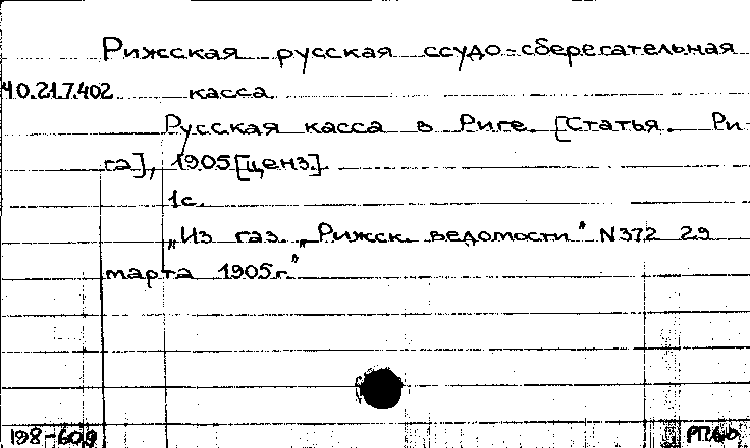 Рижская русская ссудо-сберегательная
40.217.402 касса
Русская касса в Риге. [Статья. Ри-
га], 1905 [ценз].
1с.
„Из газ. „Рижск. ведомости" N372 29
марта 1905г."
198-609